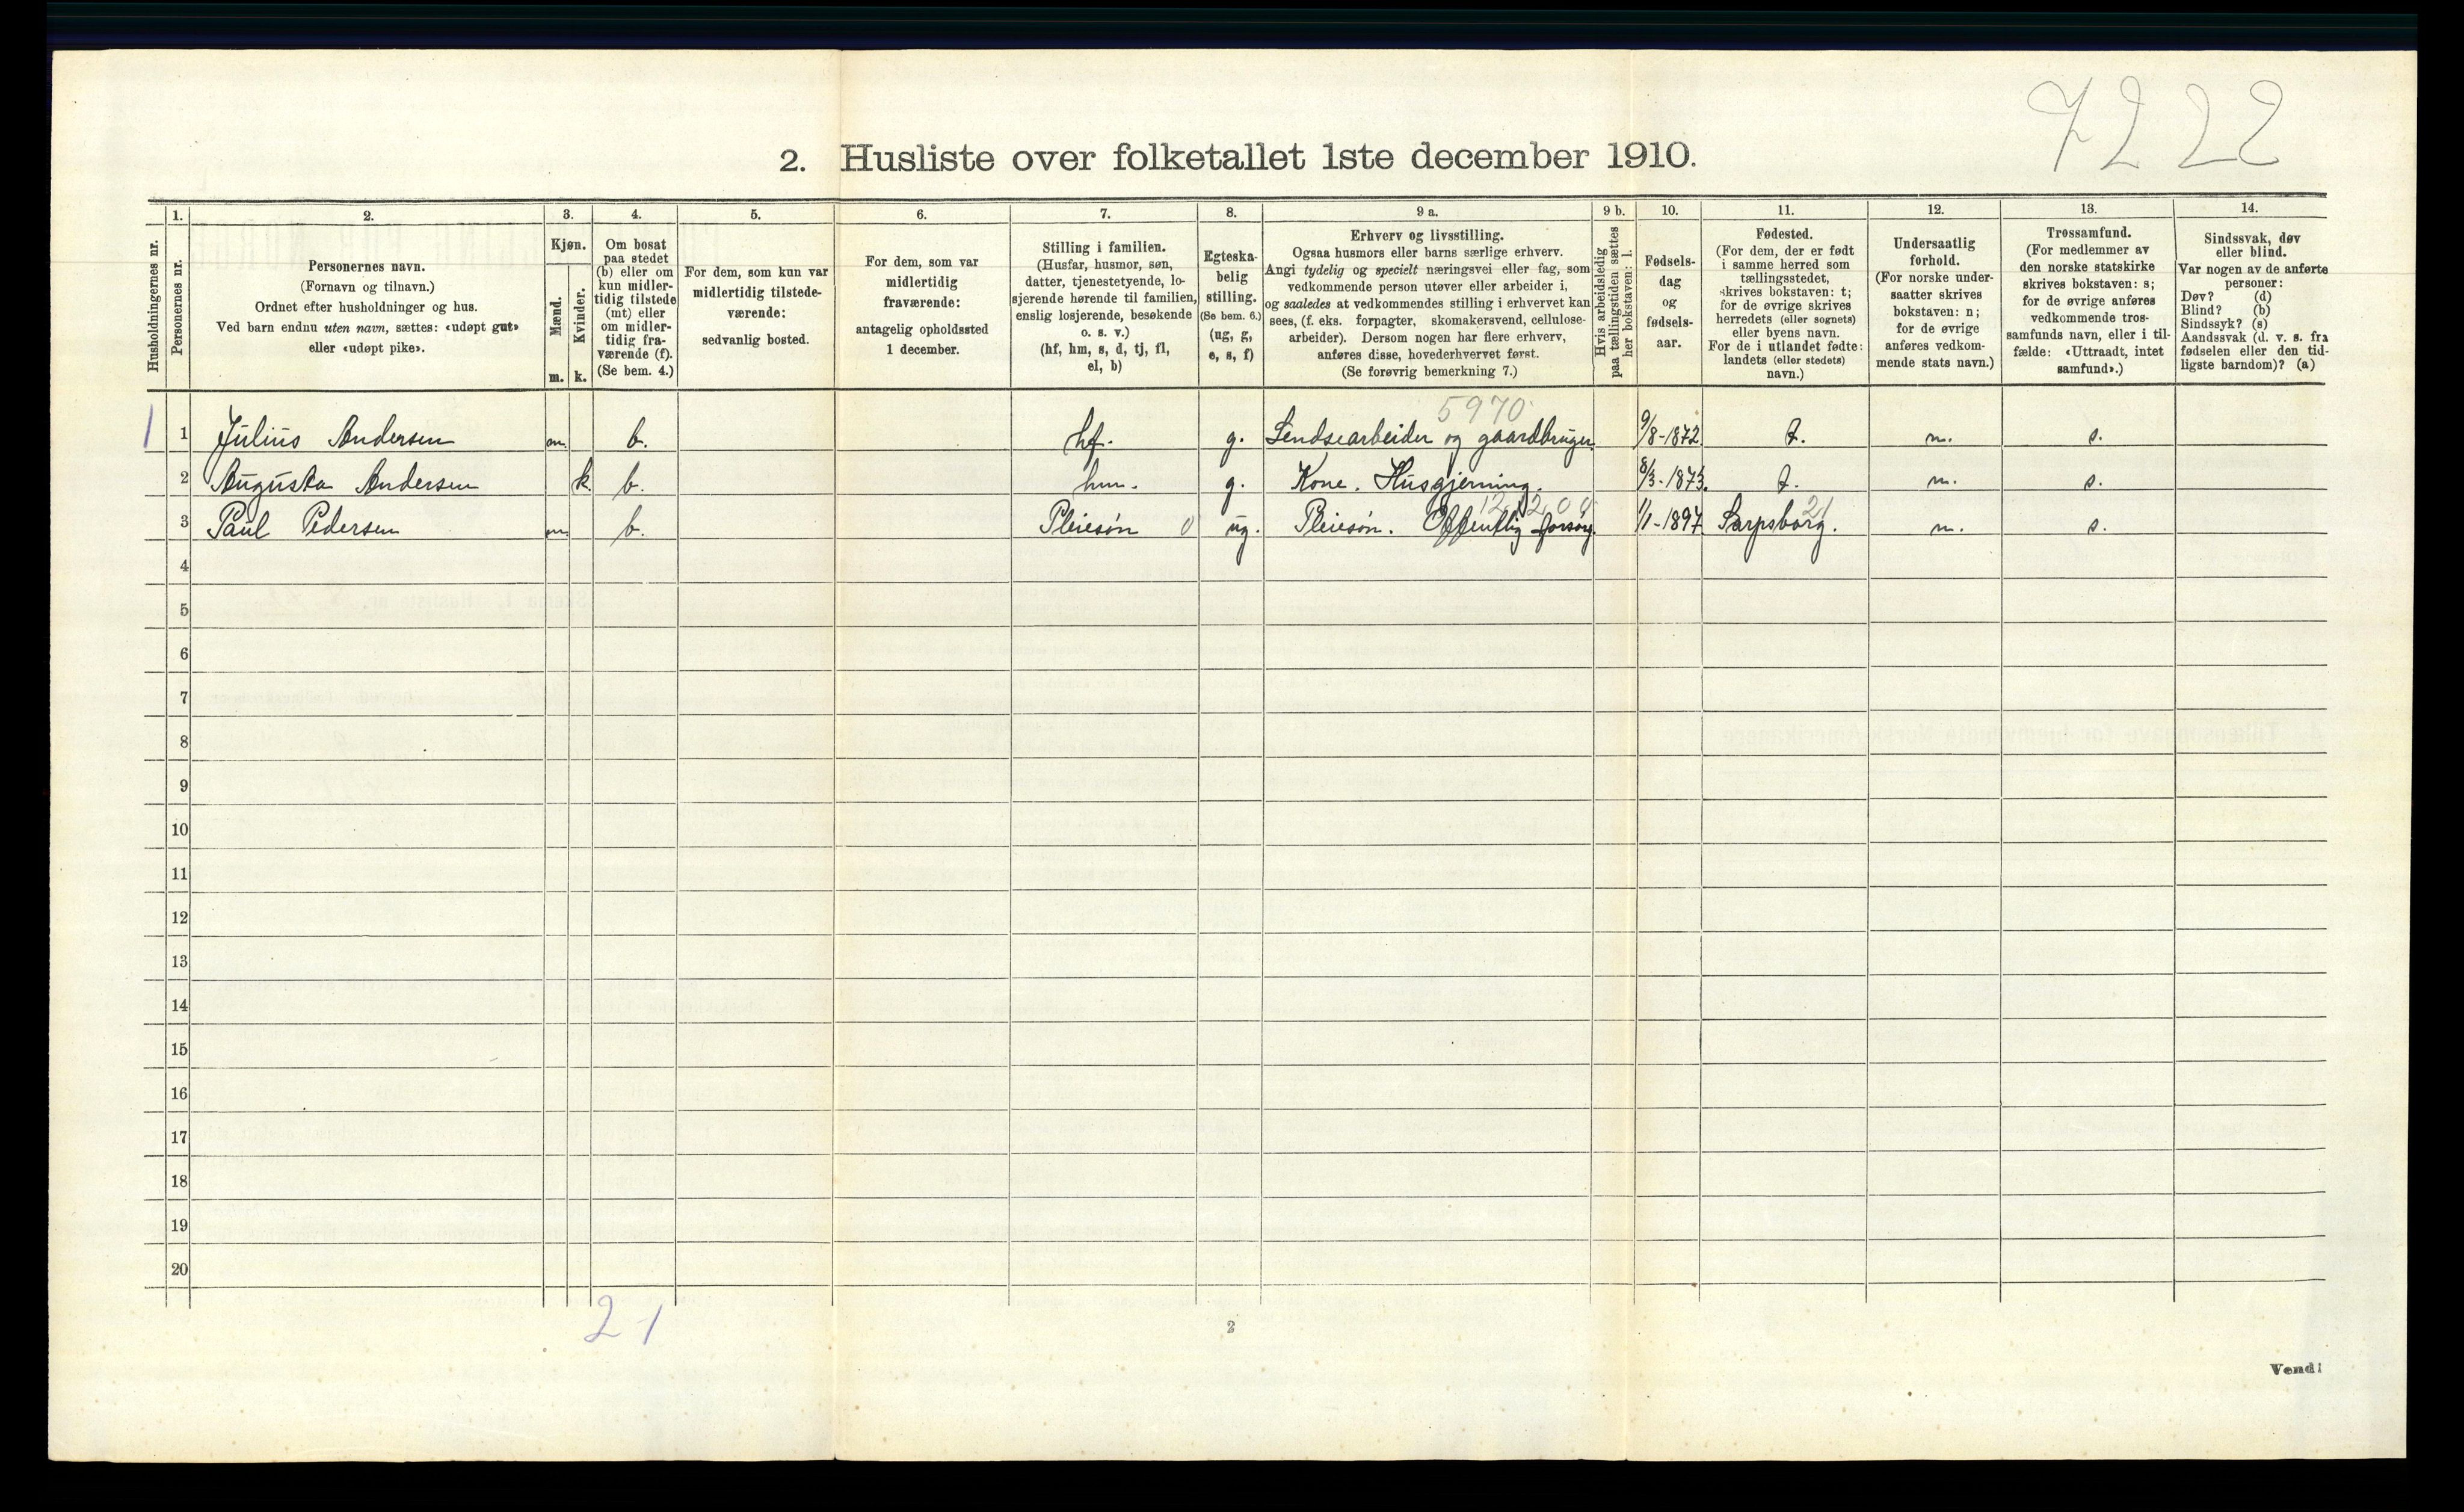 7222
2. Husliste over folketallet 1ste december 1910.
Husholdningernes nr.
1.
Personernes nr.
2.
Personernes navn.
(Fornavn og tilnavn.)
Ordnet efter husholdninger og hus.
Ved barn endnu uten navn, sættes: «udøpt gut»
eller «udøpt pike».
3.
Kjøn.
Mænd.
Kvinder.
m. k.
4.
Om bosat
paa stedet
(b) eller om
kun midler-
tidig tilstede
(mt) eller
om midler-
tidig fra-
værende (f).
(Se bem. 4.)
5.
For dem, som kun var
midlertidig tilstede-
værende:
sedvanlig bosted.
6.
For dem, som var
midlertidig
fraværende:
antagelig opholdssted
1 december.
7.
Stilling i familien.
(Husfar, husmor, søn,
datter, tjenestetyende, lo-
sjerende hørende til familien,
enslig losjerende, besøkende
o. s. v.)
(hf, hm, s, d, tj, fl,
el, b)
8.
Egteska-
belig
stilling.
(Se bem. 6.)
(ug, g,
e, s, f)
9 a.
Erhverv og livsstilling.
Ogsaa husmors eller barns særlige erhverv.
Angi tydelig og specielt næringsvei eller fag, som
vedkommende person utøver eller arbeider i,
og saaledes at vedkommendes stilling i erhvervet kan
sees, (f. eks. forpagter, skomakersvend, cellulose-
arbeider). Dersom nogen har flere erhverv,
anføres disse, hovederhvervet først.
(Se forøvrig bemerkning 7.)
9 b.
Hvis arbeidsledig
paa tællingstiden sættes
her bokstaven: l.
10.
Fødsels-
dag
og
fødsels-
aar.
11.
Fødested.
(For dem, der er født
i samme herred som
tællingsstedet,
skrives bokstaven: t;
for de øvrige skrives
herredets (eller sognets)
eller byens navn.
For de i utlandet fødte:
landets (eller stedets)
navn.)
12.
Undersaatlig
forhold.
(For norske under-
saatter skrives
bokstaven: n;
for de øvrige
anføres vedkom-
mende stats navn.)
13.
Trossamfund.
(For medlemmer av
den norske statskirke
skrives bokstaven: s;
for de øvrige anføres
vedkommende tros-
samfunds navn, eller i til-
fælde: «Uttraadt, intet
samfund».)
14.
Sindssvak, døv
eller blind.
Var nogen av de anførte
personer:
Døv? (d)
Blind? (b)
Sindssyk? (s)
Aandssvak (d. v. s. fra
fødselen eller den tid-
ligste barndom)? (a)
5970
1 1 Julius Andersen m. b. hf. g. Lendsearbeider og gaardbruger 9/8-1872 t. n. s.
2 Augusta Andersen k. b. hm. g. Kone. Husgjerning. 8/3-1873. t. n. s.
12,200 21
3 Paul Pedersen m. b. Pleiesøn 0 ug. Pleiesøn. Offentlig forsørg. 1/1-1897 Sarpsborg. n. s.
4
5
6
7
8
9
10
11
12
13
14
15
16
17
18
19
20
2 1
2
Vend!